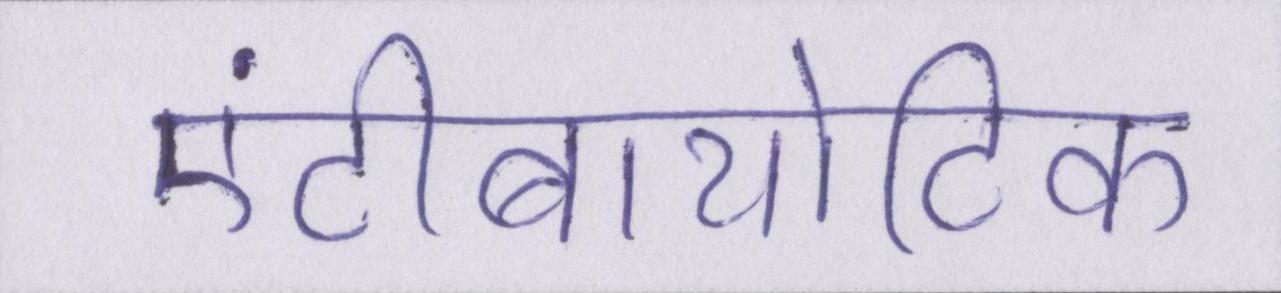 एंटीबायोटिक